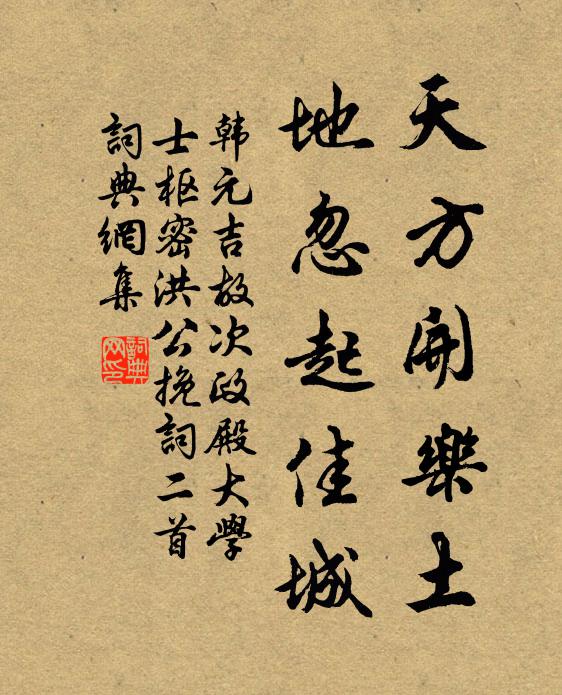 天方開樂土
地忽起佳城
韩元吉故次政殿大學
士枢密洪公挽詞二首
詞典網集
詞典
网印